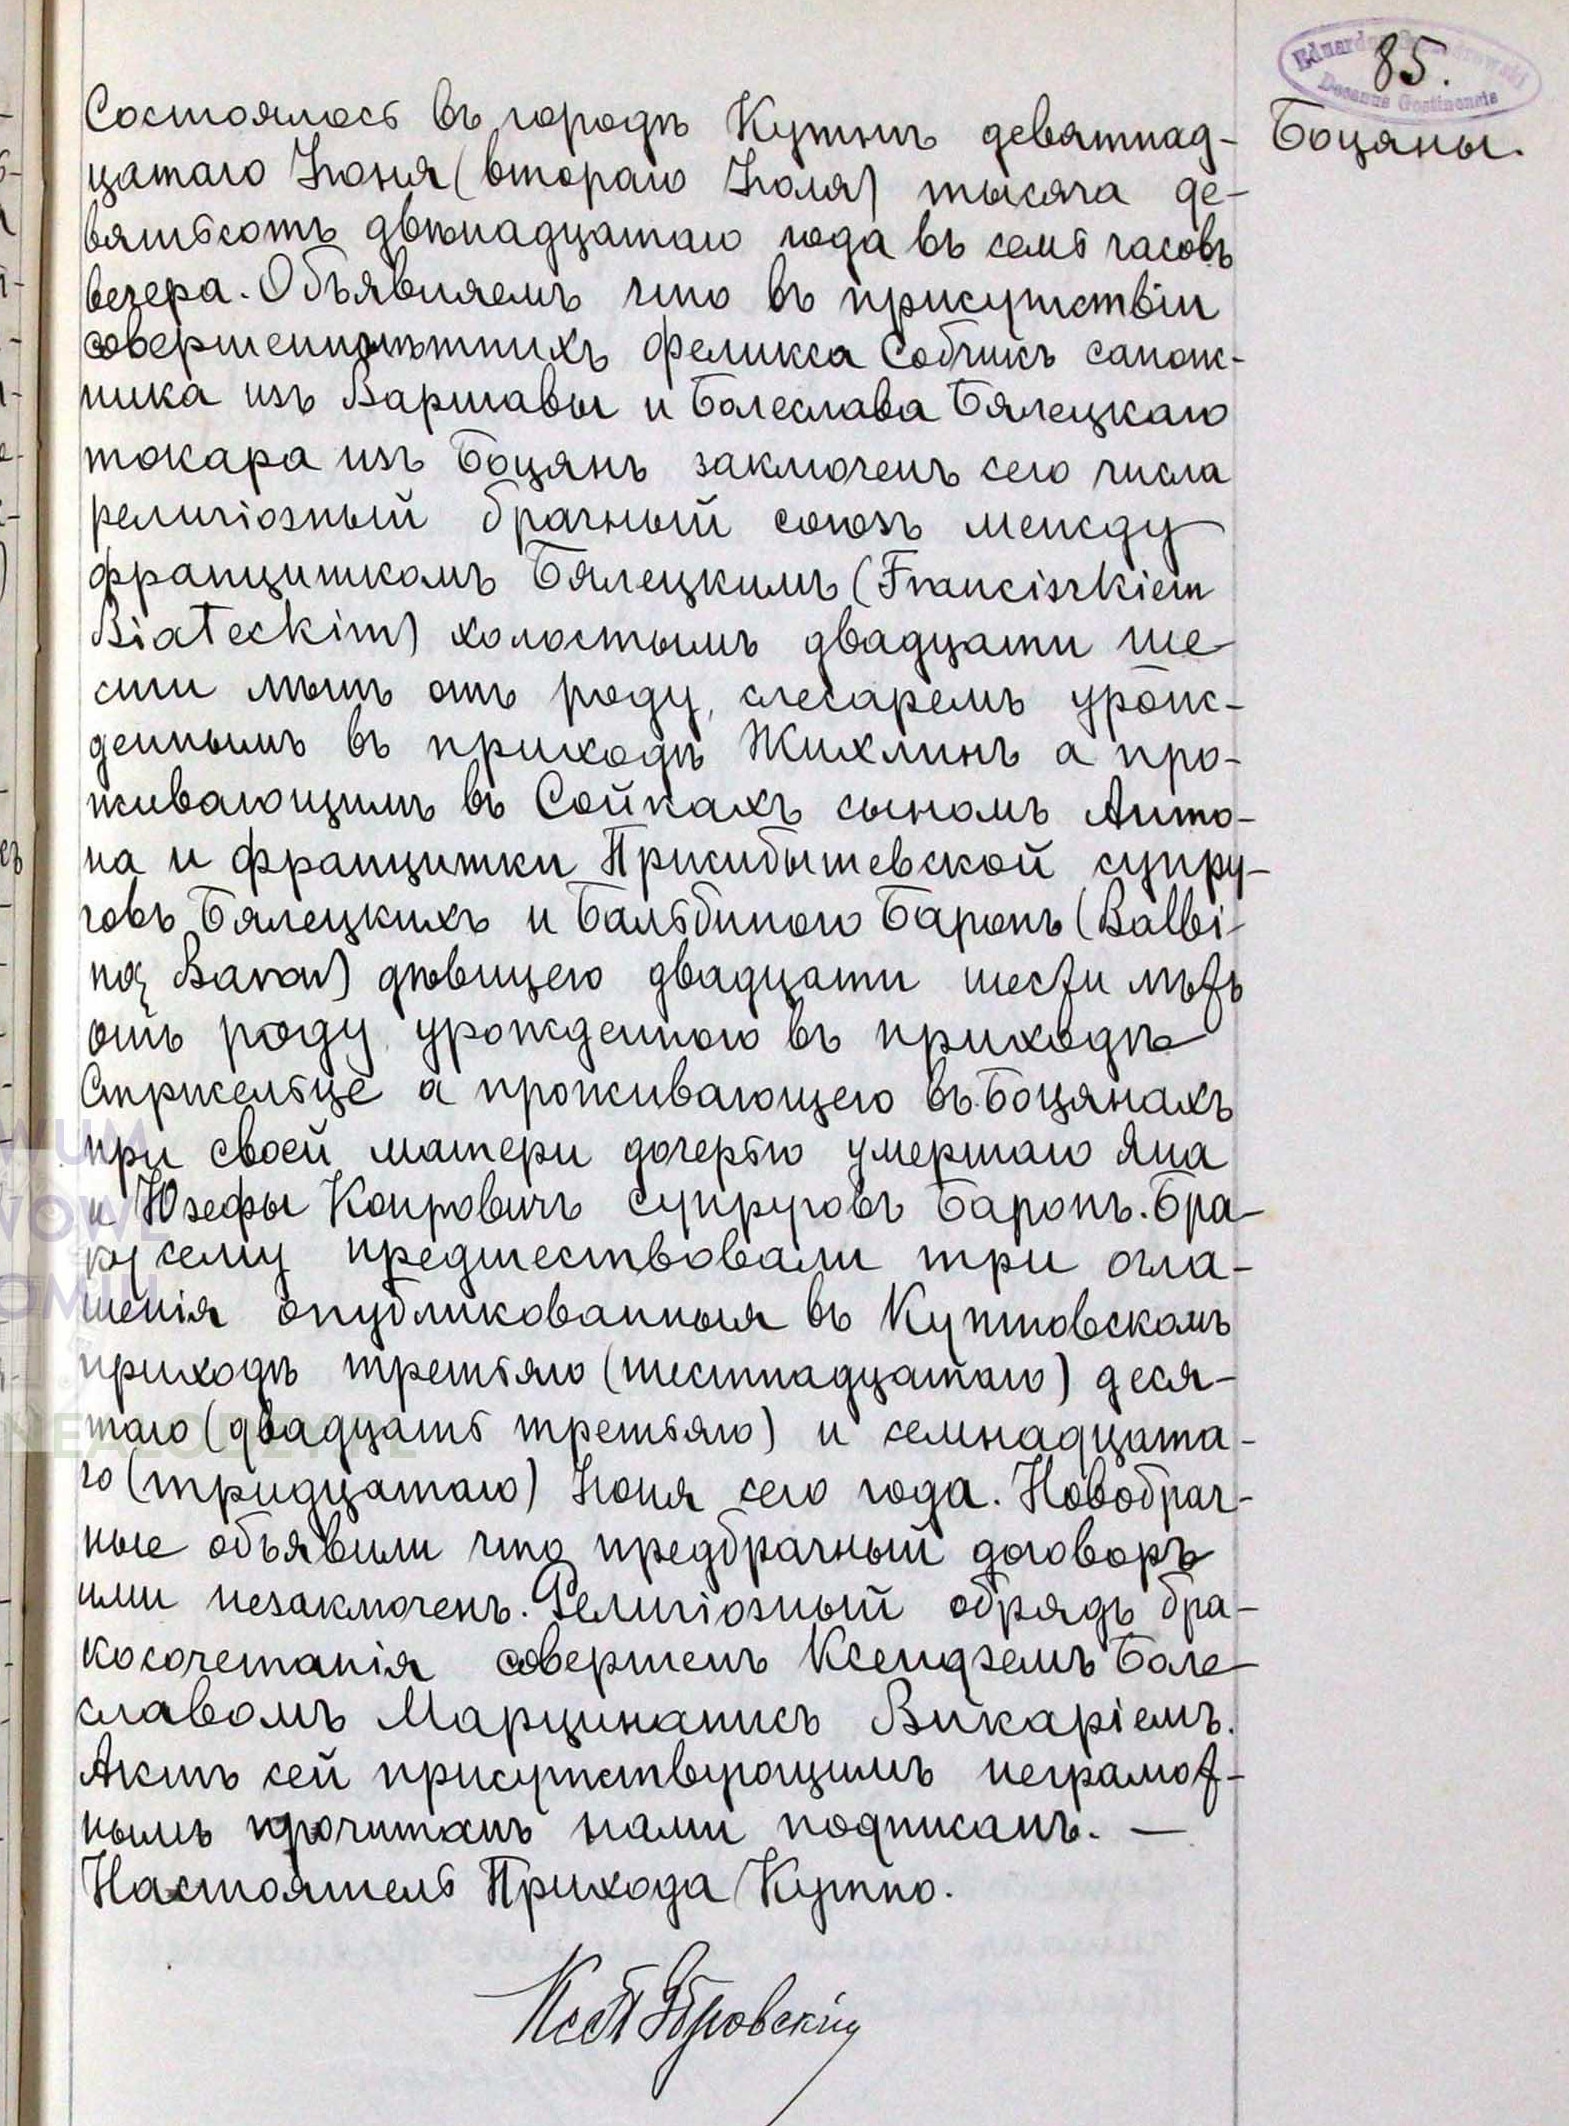 85.
Боцяны.
Состоялось въ городѣ Кутнѣ девятнад-
цатаго Іюня (втораго Іюля) тысяча де-
вятьсотъ двѣнадцатаго года въ семь часовъ
вечера. Объявляемъ что въ присутствіи
совершеннолѣтнихъ Феликса Собчикъ сапож-
ника изъ Варшавы и Болеслава Бялецкаго
токара изъ Боцянъ заключенъ сего числа
религіозный брачный союзъ между
Францишкомъ Бялецкимъ (Franciszkiem
Białeckim) холостымъ двадцати ше-
сти лѣтъ отъ роду, слесаремъ урож-
деннымъ въ приходѣ Жихлинъ а про-
живающимъ въ Сойкахъ сыномъ Анто-
на и Францишки Пржибышевской супру-
говъ Бялецкихъ и Бальбиною Баронъ (Balbi-
ną Baron) дѣвицею двадцати шести лѣтъ
отъ роду урожденною въ приходѣ
Стржельце а проживающею въ Боцянахъ
при своей матери дочерью умершаго Яна
и Юзефы Коировичъ супруговъ Баронъ. Бра-
ку сему предшествовали три огла-
шенія опубликованныя въ Кутновскомъ
приходѣ третьяго (шестнадцатаго) деся-
таго (двадцать третьяго) и семнадцата-
го (тридцатаго) Іюня сего года. Новобрач-
ные объявили что предбрачный договоръ
ими незаключенъ. Религіозный обрядъ бра-
косочетанія совершенъ Ксендземъ Боле-
славомъ Марцинапись Викаріемъ.
Актъ сей присутствующимъ неграмот-
нымъ прочитанъ нами подписанъ. —
Настоятель Прихода Кутно.